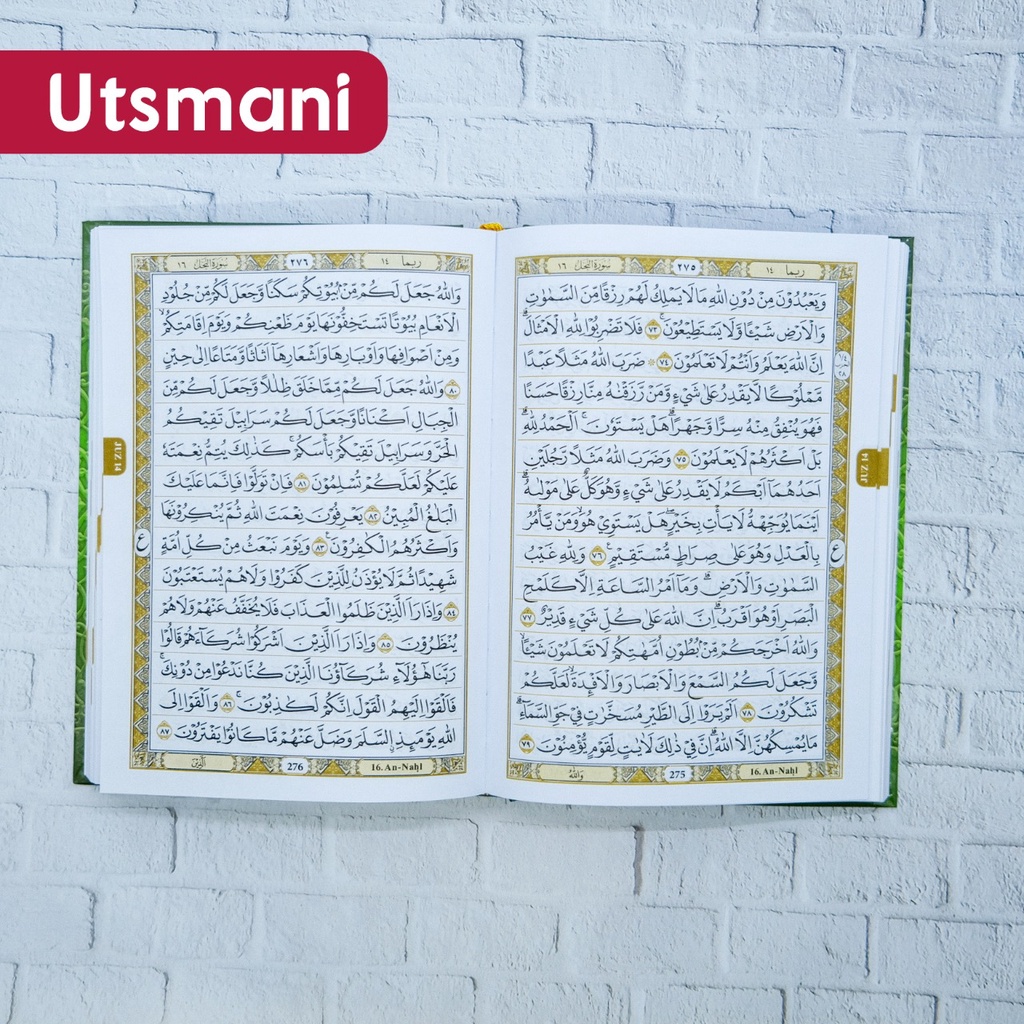 Utsmani
ربما ١٤
٢٧٥
سورة النحل ١٦
وَيَعْبُدُوْنَ مِنْ دُوْنِ اللّٰهِ مَا لَا يَمْلِكُ لَهُمْ رِزْقًا مِّنَ السَّمٰوٰتِ
وَالْاَرْضِ شَيْـًٔا وَّلَا يَسْتَطِيْعُوْنَ ۚ ٧٣ فَلَا تَضْرِبُوْا لِلّٰهِ الْاَمْثَالَ ۗ
اِنَّ اللّٰهَ يَعْلَمُ وَاَنْتُمْ لَا تَعْلَمُوْنَ ٧٤ ۞ ضَرَبَ اللّٰهُ مَثَلًا عَبْدًا
مَّمْلُوْكًا لَّا يَقْدِرُ عَلٰى شَيْءٍ وَّمَنْ رَّزَقْنٰهُ مِنَّا رِزْقًا حَسَنًا
فَهُوَ يُنْفِقُ مِنْهُ سِرًّا وَّجَهْرًا ۗ هَلْ يَسْتَوٗنَ ۚ اَلْحَمْدُ لِلّٰهِ ۗ
بَلْ اَكْثَرُهُمْ لَا يَعْلَمُوْنَ ٧٥ وَضَرَبَ اللّٰهُ مَثَلًا رَّجُلَيْنِ
اَحَدُهُمَآ اَبْكَمُ لَا يَقْدِرُ عَلٰى شَيْءٍ وَّهُوَ كَلٌّ عَلٰى مَوْلٰىهُ ۗ
اَيْنَمَا يُوَجِّهْهُّ لَا يَأْتِ بِخَيْرٍ ۖ هَلْ يَسْتَوِيْ هُوَ ۙ وَمَنْ يَّأْمُرُ
بِالْعَدْلِ وَهُوَ عَلٰى صِرَاطٍ مُّسْتَقِيْمٍ ۚ ٧٦ وَلِلّٰهِ غَيْبُ
السَّمٰوٰتِ وَالْاَرْضِ ۗ وَمَآ اَمْرُ السَّاعَةِ اِلَّا كَلَمْحِ
الْبَصَرِ اَوْ هُوَ اَقْرَبُ ۗ اِنَّ اللّٰهَ عَلٰى كُلِّ شَيْءٍ قَدِيْرٌ ٧٧
وَاللّٰهُ اَخْرَجَكُمْ مِّنْۢ بُطُوْنِ اُمَّهٰتِكُمْ لَا تَعْلَمُوْنَ شَيْـًٔا ۙ
وَّجَعَلَ لَكُمُ السَّمْعَ وَالْاَبْصَارَ وَالْاَفْـِٕدَةَ ۙ لَعَلَّكُمْ
تَشْكُرُوْنَ ٧٨ اَلَمْ يَرَوْا اِلَى الطَّيْرِ مُسَخَّرٰتٍ فِيْ جَوِّ السَّمَاۤءِ ۗ
مَا يُمْسِكُهُنَّ اِلَّا اللّٰهُ ۗ اِنَّ فِيْ ذٰلِكَ لَاٰيٰتٍ لِّقَوْمٍ يُّؤْمِنُوْنَ ٧٩
ع
JUZ 14
16. An-Naḥl
275
وَاللّٰهُ
ربما ١٤
٢٧٦
سورة النحل ١٦
وَاللّٰهُ جَعَلَ لَكُمْ مِّنْۢ بُيُوْتِكُمْ سَكَنًا وَّجَعَلَ لَكُمْ مِّنْ جُلُوْدِ
الْاَنْعَامِ بُيُوْتًا تَسْتَخِفُّوْنَهَا يَوْمَ ظَعْنِكُمْ وَيَوْمَ اِقَامَتِكُمْ ۙ
وَمِنْ اَصْوَافِهَا وَاَوْبَارِهَا وَاَشْعَارِهَآ اَثَاثًا وَّمَتَاعًا اِلٰى حِيْنٍ
٨٠ وَاللّٰهُ جَعَلَ لَكُمْ مِّمَّا خَلَقَ ظِلٰلًا وَّجَعَلَ لَكُمْ مِّنَ
الْجِبَالِ اَكْنَانًا وَّجَعَلَ لَكُمْ سَرَابِيْلَ تَقِيْكُمُ
الْحَرَّ وَسَرَابِيْلَ تَقِيْكُمْ بَأْسَكُمْ ۚ كَذٰلِكَ يُتِمُّ نِعْمَتَهٗ
عَلَيْكُمْ لَعَلَّكُمْ تُسْلِمُوْنَ ٨١ فَاِنْ تَوَلَّوْا فَاِنَّمَا عَلَيْكَ
الْبَلٰغُ الْمُبِيْنُ ٨٢ يَعْرِفُوْنَ نِعْمَتَ اللّٰهِ ثُمَّ يُنْكِرُوْنَهَا
وَاَكْثَرُهُمُ الْكٰفِرُوْنَ ۚ ٨٣ وَيَوْمَ نَبْعَثُ مِنْ كُلِّ اُمَّةٍ
شَهِيْدًا ثُمَّ لَا يُؤْذَنُ لِلَّذِيْنَ كَفَرُوْا وَلَا هُمْ يُسْتَعْتَبُوْنَ
٨٤ وَاِذَا رَاَ الَّذِيْنَ ظَلَمُوا الْعَذَابَ فَلَا يُخَفَّفُ عَنْهُمْ وَلَا هُمْ
يُنْظَرُوْنَ ٨٥ وَاِذَا رَاَ الَّذِيْنَ اَشْرَكُوْا شُرَكَاۤءَهُمْ قَالُوْا
رَبَّنَا هٰٓؤُلَاۤءِ شُرَكَاۤؤُنَا الَّذِيْنَ كُنَّا نَدْعُوْا مِنْ دُوْنِكَ ۚ
فَاَلْقَوْا اِلَيْهِمُ الْقَوْلَ اِنَّكُمْ لَكٰذِبُوْنَ ۚ ٨٦ وَاَلْقَوْا اِلَى
اللّٰهِ يَوْمَىِٕذِ ِۨالسَّلَمَ وَضَلَّ عَنْهُمْ مَّا كَانُوْا يَفْتَرُوْنَ ٨٧
ع
JUZ 14
16. An-Naḥl
276
اَلَّذِيْنَ